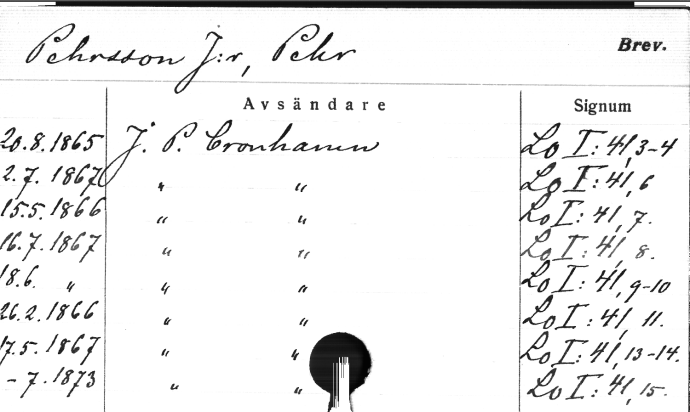 Pehrsson J:r, Pehr Brev.
Avsändare Signum
20.8.1865 J. P. Cronhamn Lo I: 41, 3-4
2.7.1867 " " Lo I: 41, 6
15.5.1866 " " Lo I: 41, 7.
16.7.1867 " " Lo I: 41, 8.
18.6. " " " Lo I: 41, 9-10
26.2.1866 " " Lo I: 41, 11.
17.5.1867 " " Lo I: 41, 13-14.
- 7.1873 " " Lo I: 41, 15.